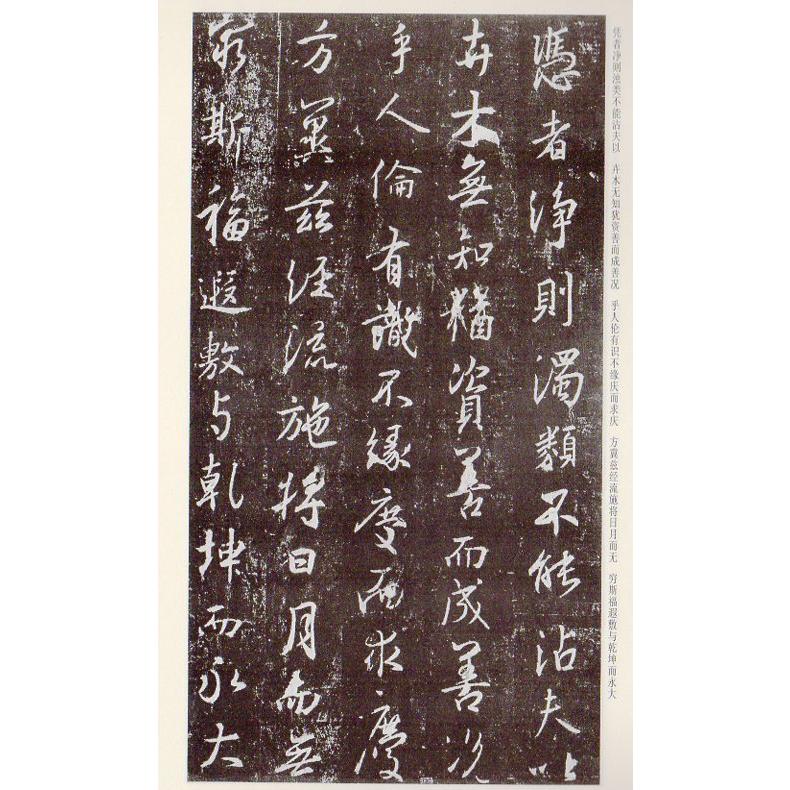 凭者净则浊类不能沾夫以 卉木无知犹资善而成善况 乎人伦有识不缘庆而求庆 方冀兹经流施将日月而无 穷斯福遐敷与乾坤而永大
憑者淨則濁類不能沾夫以
卉木無知猶資善而成善況
乎人倫有識不緣慶而求慶
方冀茲經流施將日月而無
窮斯福遐敷与乾坤而永大